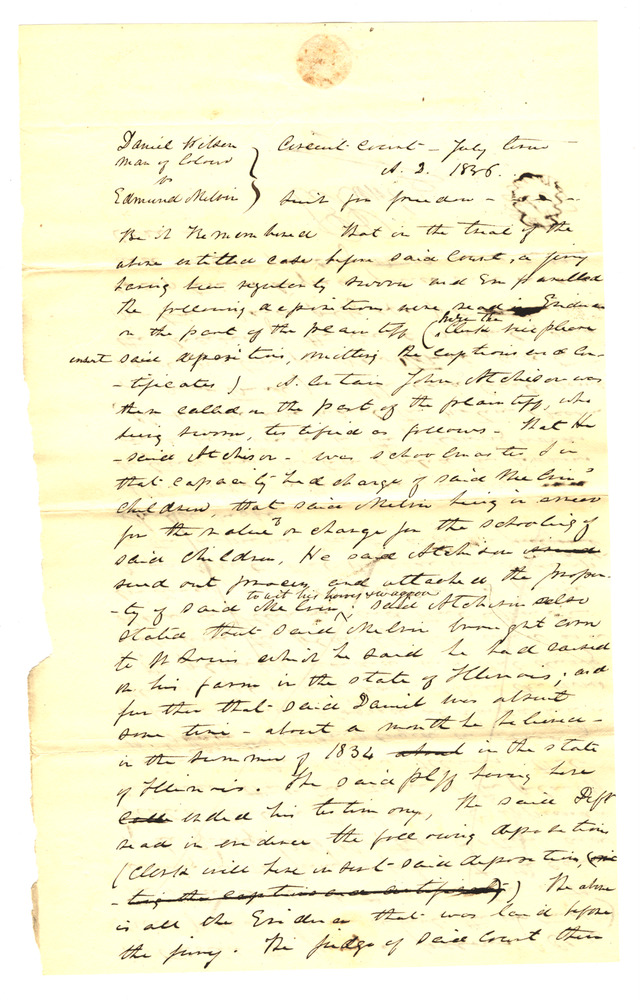 Daniel Wilson
man of Colour
vs
Edmund Melvin
Circuit Court - July term -
A. D. 1836.
Suit for freedom -
Be it Remembered that in the trial of the
above entitled case before said Court, a jury
having been regularly sworn and Empanelled
the following depositions were read in Evidence
on the part of the plaintiff (Clerk will please
insert said depositions, omitting the captions and Cer-
-tificates) A Certain John Atchison was
then called on the part of the plaintiff, who
being sworn, testified as follows - That He
- said Atchison - was schoolmaster & in
that capacity had charge of said Melvins
Children, that said Melvin being in arrear
for the value or charge for the schooling of
said Children, He said Atchison issued
sued out process and attached the proper-
to wit his horses & waggon
-ty of said Melvin; said Atchison also
stated that said Melvin brought corn
to St Louis which he said he had raised
on his farm in the state of Illinois; and
further that said Daniel was absent
some time - about a month he believes -
in the summer of 1834 in the state
of Illinois. The said plff having here
ended his testimony, the said Deft
read in evidence the following depositions
(Clerk will here insert said depositions, omit-
-ting the captions and certificates) The above
is all the Evidence that was laid before
the jury. The judge of said Court then